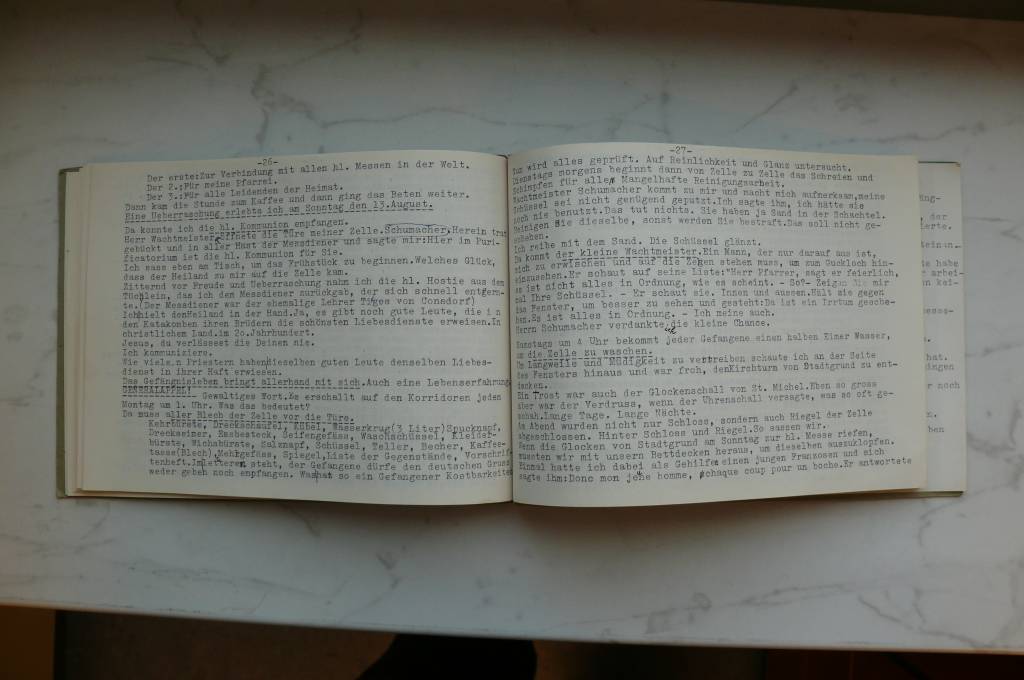 -26-
Der erste:Zur Verbindung mit allen hl. Messen in der Welt.
Der 2.:Für meine Pfarrei.
Der 3.:Für alle Leidenden der Heimat.
Dann kam die Stunde zum Kaffee und dann ging das Beten weiter.
Eine Ueberraschung erlebte ich am Sonntag den 13.August.
Da konnte ich die hl. Kommunion empfangen.
Herr Wachtmeister die Türe meiner Zelle.Schumacher,Herein trat
gebückt und in aller Hast der Messdiener und sagte mir:Hier im Puri-
ficatorium ist die hl. Kommunion für Sie.
Ich sass eben am Tisch, um das Frühstück zu beginnen.Welches Glück,
dass der Heiland zu mir auf die Zelle kam.
Zitternd vor Freude und Ueberraschung nahm ich die hl. Hostie aus dem
Tüchlein, das ich dem Messdiener zurückgab, der sich schnell entfern-
te.(Der Messdiener war der ehemalige Lehrer von Consdorf)
Ich hielt denHeiland in der Hand.Ja, es gibt noch gute Leute, die in
den Katakomben ihren Brüdern die schönsten Liebesdienste erweisen.In
christlichem Land.im 2o.Jahrhundert.
Jesus, du verlässest die Deinen nie.
Ich kommuniziere.
Wie viele.n Priestern haben dieselben guten Leute denselben Liebes-
dienst in ihrer Haft erwiesen.
Das Gefängnisleben bringt allerhand mit sich.Auch eine Lebenserfahrung
GENERALAPPEL! Gewaltiges Wort.Es erschallt auf den Korridoren jeden
Montag um 1. Uhr. Was das bedeutet?
Da muss aller Blech der Zelle vor die Türe.
Kehrbürste, Dreckschaufel, Kübel, Wasserkrug(3 Liter)Spucknapf,
Dreckeimer, Essbesteck, Seifengefäss, Waschschüssel, Kleider-
bürste, Wichsbürste, Salznapf, Schüssel, Teller, Becher, Kaffee-
tasse(Blech),Mehrgefäss, Spiegel,Liste der Gegenstände, Vorschrif-
tenheft.Im letzteren steht, der Gefangene dürfe den deutschen Gruss
weder geben noch empfangen. Was hat so ein Gefangener Kostbarkeiten
-27-
wird alles geprüft. Auf Reinlichkeit und Glanz untersucht.
Dienstags morgens beginnt dann von Zelle zu Zelle das Schreien und
Schimpfen für alle Mangelhafte Reinigungsarbeit.
Wachtmeister Schumacher kommt zu mir und macht mich aufmerksam,meine
Schüssel sei nicht genügend geputzt.Ich sagte ihm, ich hätte sie
noch nie benutzt.Das tut nichts. Sie haben ja Sand in der Schachtel.
Reinigen Sie dieselbe, sonst werden Sie bestraft.Das soll nicht ge-
schehen.
Ich reibe mit dem Sand. Die Schüssel glänzt.
Da kommt der kleine Wachtmeister.Ein Mann, der nur darauf aus ist,
mich zu erwischen und auf die Zehen stehen muss, um zum Guckloch hin-
einzusehen.Er schaut auf seine Liste:"Herr Pfarrer, sagt er feierlich,
es ist nicht alles in Ordnung, wie es scheint. - So?- Zeigen Sie mir
mal Ihre Schüssel. - Er schaut sie. Innen und aussen.Hält sie gegen
das Fenster, um besser zu sehen und gesteht:Da ist ein Irrtum gesche-
hen.Es ist alles in Ordnung. - Ich meine auch.
Herrn Schumacher verdankte ich die kleine Chance.
Samstags um 4 Uhr bekommt jeder Gefangene einen halben Eimer Wasser,
um die Zelle zu waschen.
Um Langweile und Müdigkeit zu vertreiben schaute ich an der Seite
des Fensters hinaus und war froh, denKirchturm von Stadtgrund zu ent-
decken.
Ein Trost war auch der Glockenschall von St. Michel.Eben so gross
aber war der Verdruss, wenn der Uhrenschall versagte, was so oft ge-
schah.Lange Tage. Lange Nächte.
Am Abend wurden nicht nur Schloss, sondern auch Riegel der Zelle
abgeschlossen. Hinter Schloss und Riegel.So sassen wir.
Wenn die Glocken von Stadtgrund am Sonntag zur hl. Messe riefen,
mussten wir mit unsern Bettdecken heraus, um dieselben auszuklopfen.
Einmal hatte ich dabei als Gehilfen einen jungen Franzosen und sich
sagte ihm:Donc mon jeune homme, chaque coup pour un boche.Er antwortete